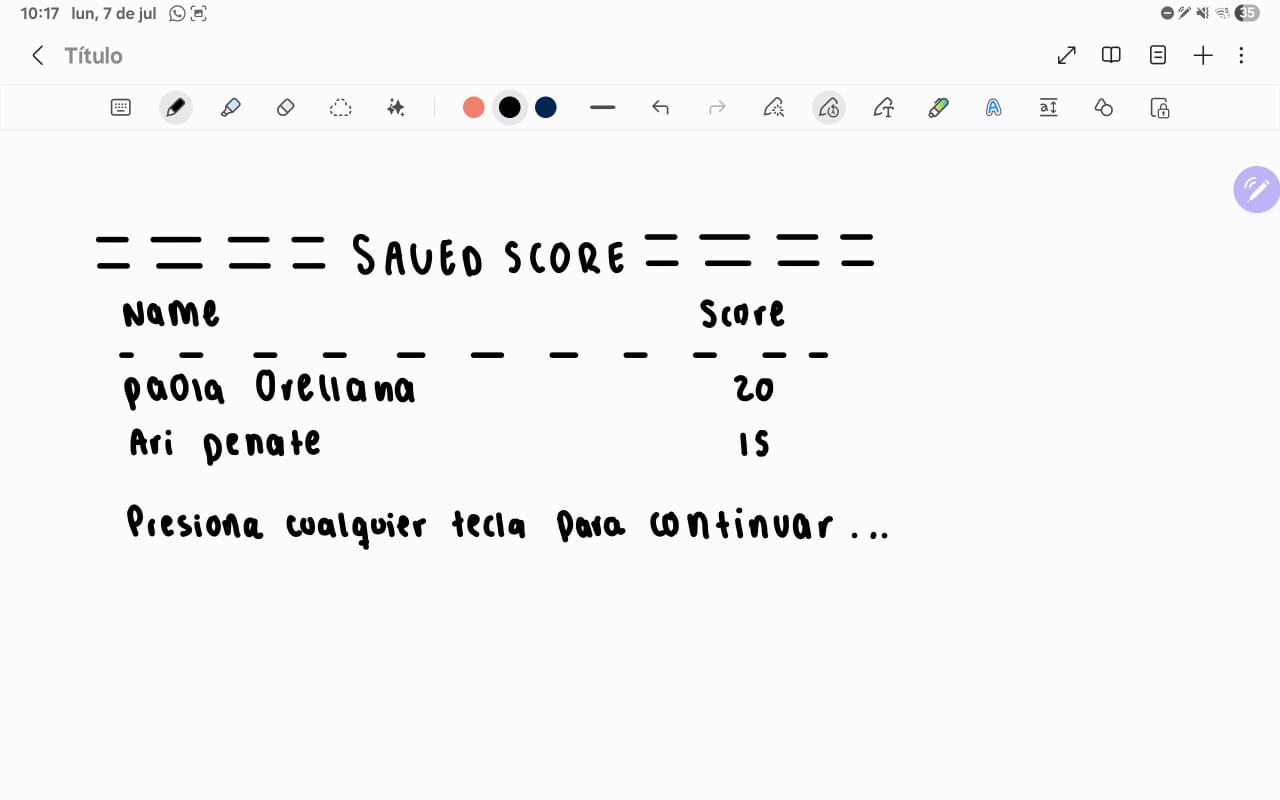 10:17 lun, 7 de jul 35
Título
==== SAVED SCORE ====
Name Score
- - - - - - - - - - -
paola Orellana 20
Ari penate 15
Presiona cualquier tecla para continuar ...